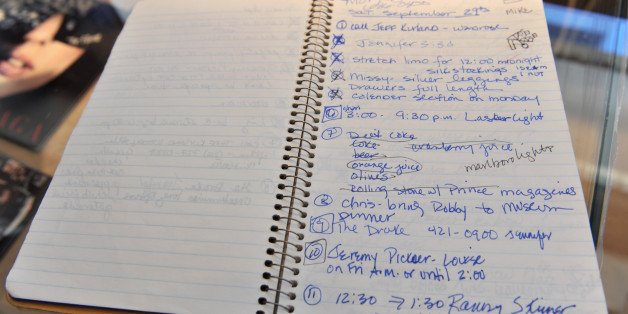 Sat September 29th
Mike
① Call Jeff Kurland - wardrobe
Jennifer 5:55
Stretch limo for 12:00 midnight
silk stockings
Missy - silver leggings
Drawers full length
Calender section on monday
⑥ 8:00 - 9:30 p.m. Laserlight
⑦ Diet coke
coke cranberry juice,
beer
orange juice marlboro lights
olives
Rolling Stone w/ Prince magazines
⑧ Chris - bring Robby to museum
Dinner
⑨ The Drake 421-0900 Jennifer
⑩ Jeremy Picker - Louise
on Fri A.M. or until 2:00
⑪ 12:30 → 1:30 Randy Skinner